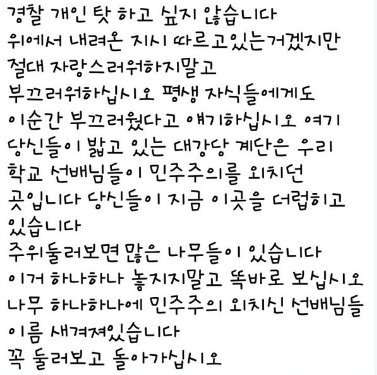 경찰 개인 탓 하고 싶지 않습니다
위에서 내려온 지시 따르고있는거겠지만
절대 자랑스러워하지말고
부끄러워하십시오 평생 자식들에게도
이순간 부끄러웠다고 얘기하십시오 여기
당신들이 밟고 있는 대강당 계단은 우리
학교 선배님들이 민주주의를 외치던
곳입니다 당신들이 지금 이곳을 더럽히고
있습니다
주위둘러보면 많은 나무들이 있습니다
이거 하나하나 놓지지말고 똑바로 보십시오
나무 하나하나에 민주주의 외치신 선배님들
이름 새겨져있습니다
꼭 둘러보고 돌아가십시오